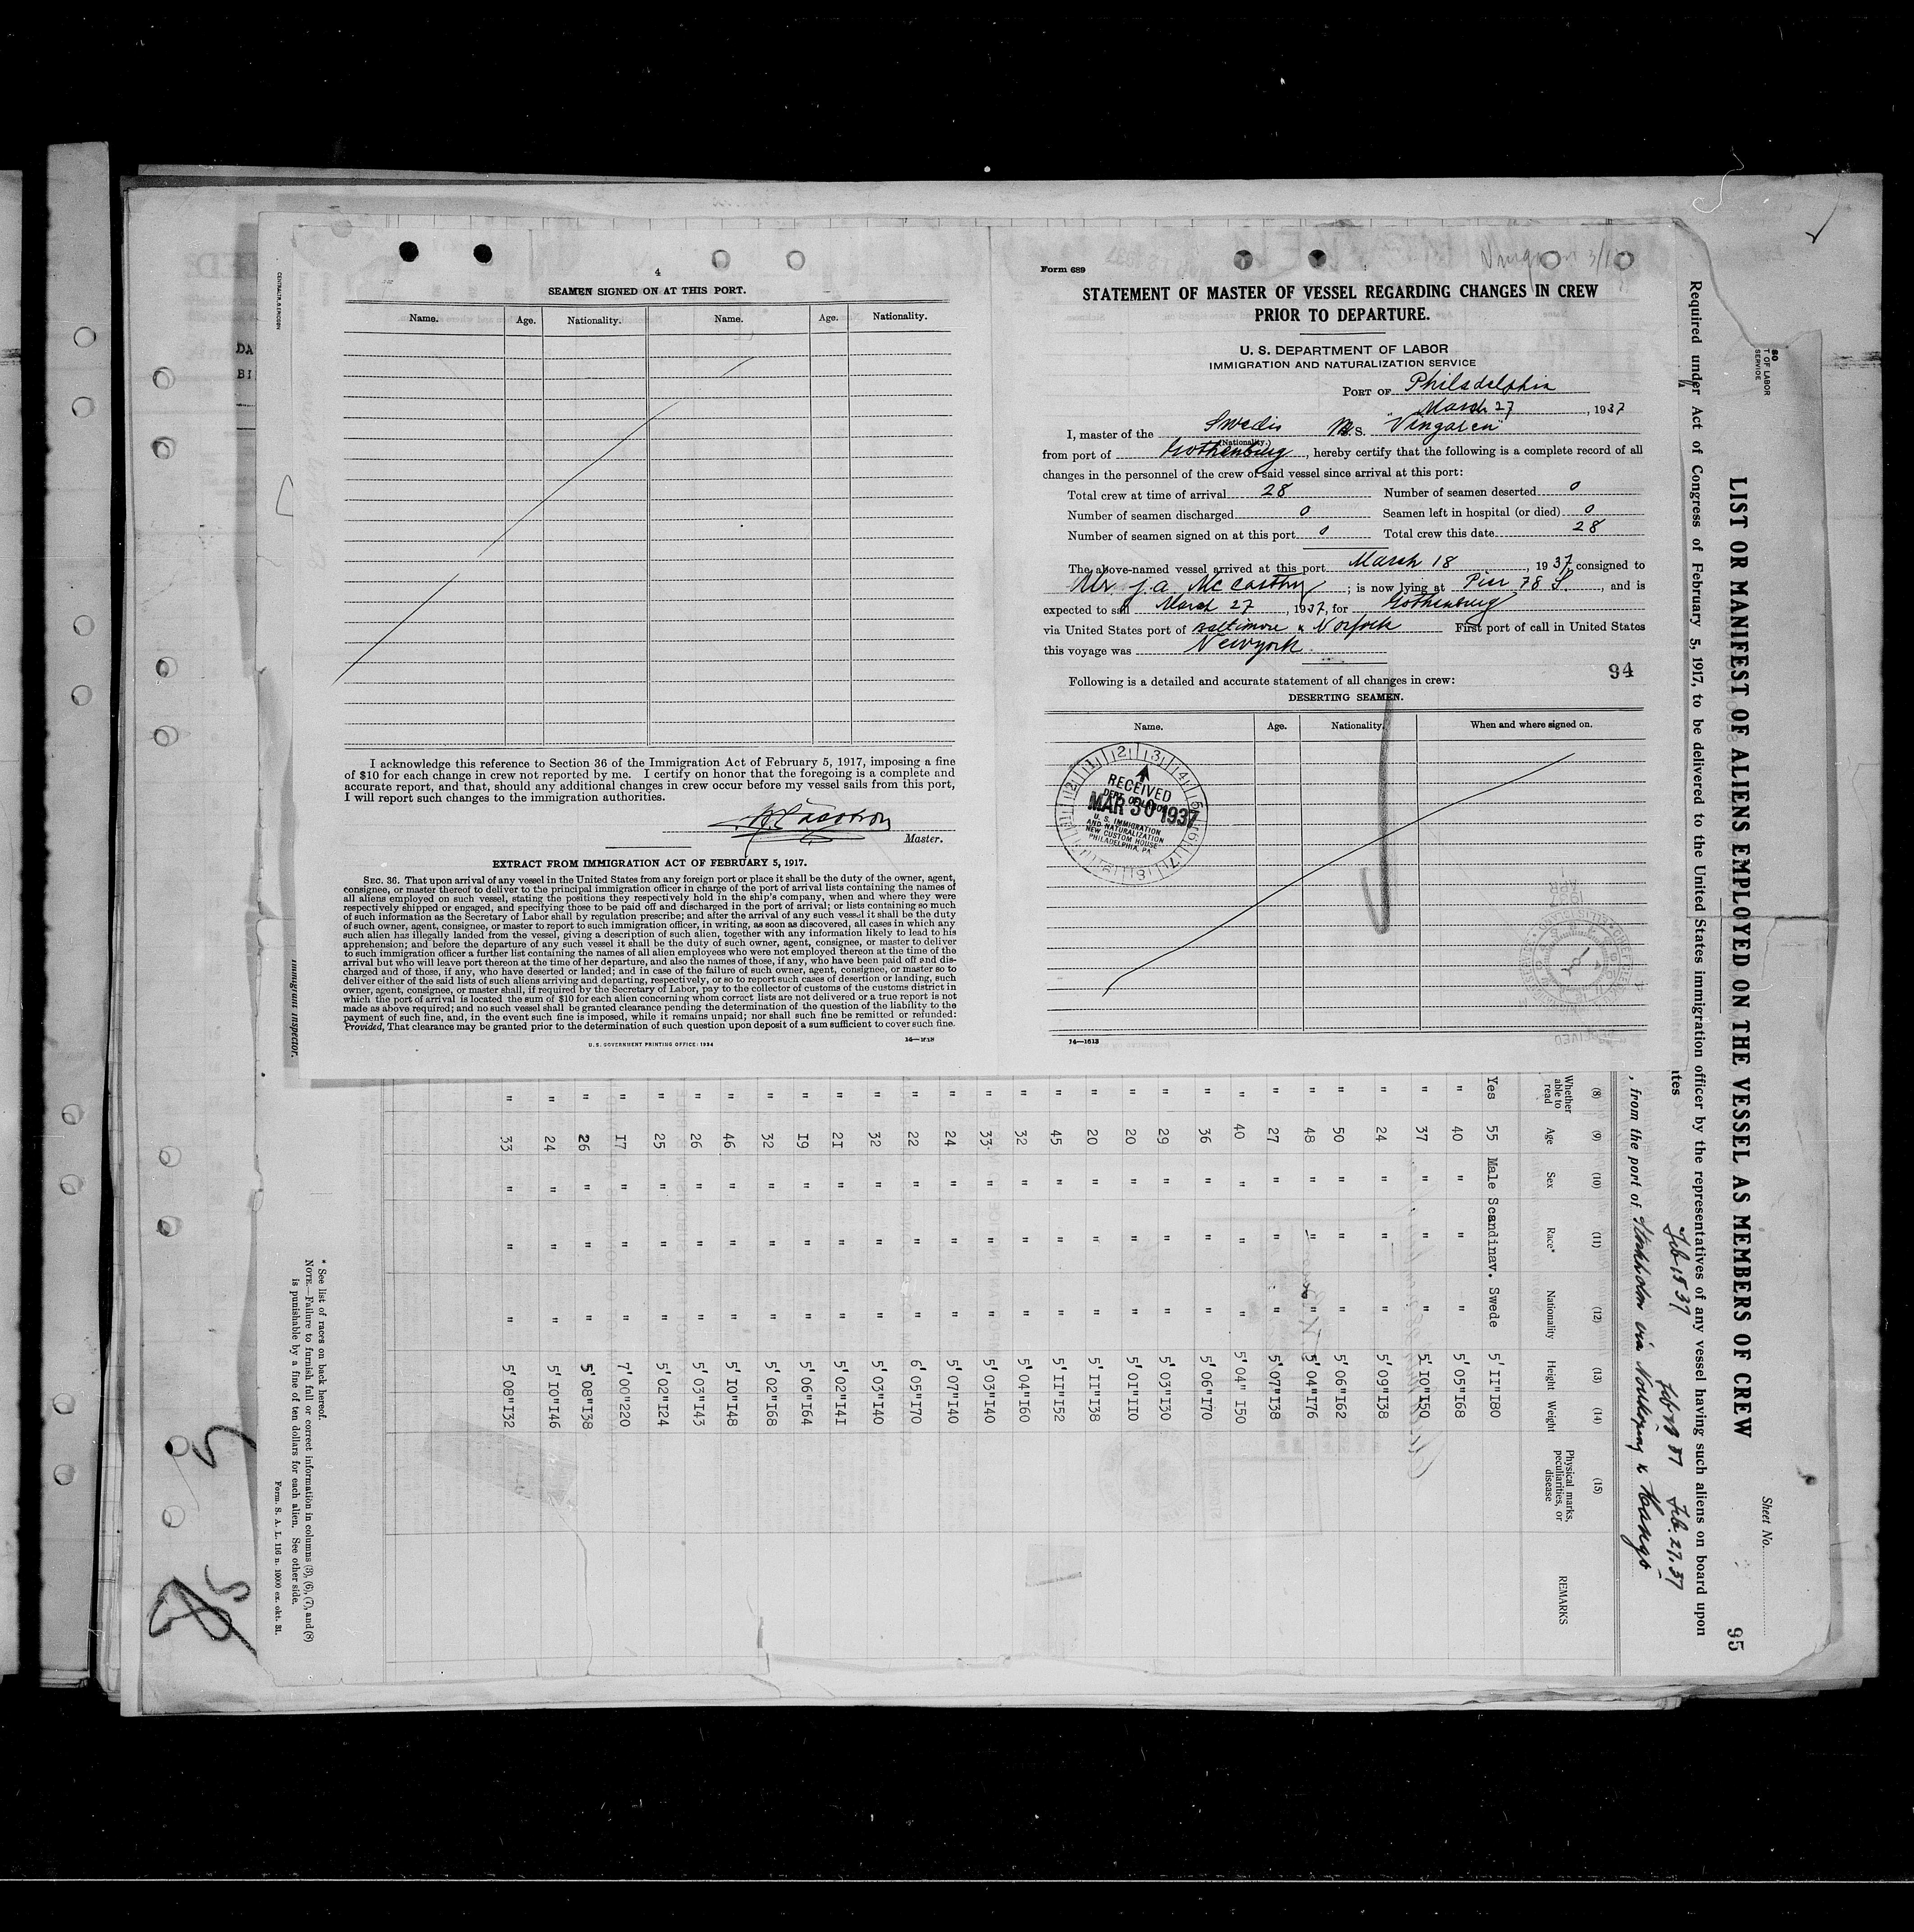 4
SEAMEN SIGNED ON AT THIS PORT.
Name. Age. Nationality. Name. Age. Nationality.
I acknowledge this reference to Section 36 of the Immigration Act of February 5, 1917, imposing a fine
of $10 for each change in crew not reported by me. I certify on honor that the foregoing is a complete and
accurate report, and that, should any additional changes in crew occur before my vessel sails from this port,
I will report such changes to the immigration authorities.
Master.
EXTRACT FROM IMMIGRATION ACT OF FEBRUARY 5, 1917.
SEC. 36. That upon arrival of any vessel in the United States from any foreign port or place it shall be the duty of the owner, agent,
consignee, or master thereof to deliver to the principal immigration officer in charge of the port of arrival lists containing the names of
all aliens employed on such vessel, stating the positions they respectively hold in the ship's company, when and where they were
respectively shipped or engaged, and specifying those to be paid off and discharged in the port of arrival; or lists containing so much
of such information as the Secretary of Labor shall by regulation prescribe; and after the arrival of any such vessel it shall be the duty
of such owner, agent, consignee, or master to report to such immigration officer, in writing, as soon as discovered, all cases in which any
such alien has illegally landed from the vessel, giving a description of such alien, together with any information likely to lead to his
apprehension; and before the departure of any such vessel it shall be the duty of such owner, agent, consignee, or master to deliver
to such immigration officer a further list containing the names of all alien employees who were not employed thereon at the time of the
arrival but who will leave port thereon at the time of her departure, and also the names of those, if any, who have been paid off and dis-
charged and of those, if any, who have deserted or landed; and in case of the failure of such owner, agent, consignee, or master so to
deliver either of the said lists of such aliens arriving and departing, respectively, or so to report such cases of desertion or landing, such
owner, agent, consignee, or master shall, if required by the Secretary of Labor, pay to the collector of customs of the customs district in
which the port of arrival is located the sum of $10 for each alien concerning whom correct lists are not delivered or a true report is not
made as above required; and no such vessel shall be granted clearance pending the determination of the question of the liability to the
payment of such fine, and, in the event such fine is imposed, while it remains unpaid; nor shall such fine be remitted or refunded:
Provided, That clearance may be granted prior to the determination of such question upon deposit of a sum sufficient to cover such fine.
U.S. GOVERNMENT PRINTING OFFICE: 1934
Form 689
STATEMENT OF MASTER OF VESSEL REGARDING CHANGES IN CREW
PRIOR TO DEPARTURE.
U. S. DEPARTMENT OF LABOR
IMMIGRATION AND NATURALIZATION SERVICE
PORT OF Philadelphia
March 27, 1937
I, master of the Swedis M.S. "Vingaren"
(Nationality.)
from port of Gothenburg, hereby certify that the following is a complete record of all
changes in the personnel of the crew of said vessel since arrival at this port:
Total crew at time of arrival 28 Number of seamen deserted 0
Number of seamen discharged 0 Seamen left in hospital (or died) 0
Number of seamen signed on at this port 0 Total crew this date 28
The above-named vessel arrived at this port March 18, 1937, consigned to
Mr J.A. McCarthy; is now lying at Pier 78 S., and is
expected to sail March 27, 1937, for Gothenburg
via United States port of Baltimore & Norfolk First port of call in United States
this voyage was Newyork.
94
Following is a detailed and accurate statement of all changes in crew:
DESERTING SEAMEN.
Name. Age. Nationality. When and where signed on.
RECEIVED
DEPT. OF LABOR
MAR 30 1937
U. S. IMMIGRATION
AND NATURALIZATION
NEW CUSTOM HOUSE
PHILADELPHIA, PA.
14—1613
Sheet No.
95
LIST OR MANIFEST OF ALIENS EMPLOYED ON THE VESSEL AS MEMBERS OF CREW
Required under Act of Congress of February 5, 1917, to be delivered to the United States immigration officer by the representatives of any vessel having such aliens on board upon
Feb 15 37 Feb 27. 37
, from the port of Stockholm via Norrköping &
(8) (9) (10) (11) (12) (13) (14) (15)
Whether able to read Age Sex Race* Nationality Height Weight Physical marks, peculiarities, or disease REMARKS
Yes 55 Male Scandinav. Swede 5'II"I80
" 40 " " " 5'05"I68
" 37 " " " 5'I0"I50
" 24 " " " 5'09"I38
" 50 " " " 5'06"I62
" 48 " " " 5'04"I76
" 27 " " " 5'07"I38
" 40 " " " 5'04" I50
" 36 " " " 5'06"I70
" 29 " " " 5'03"I30
" 20 " " " 5'0I"II0
" 20 " " " 5'II"I38
" 45 " " " 5'II"I52
" 32 " " " 5'04"I60
" 33 " " " 5'03"I40
" 24 " " " 5'07"I40
" 22 " " " 6'05"I70
" 32 " " " 5'03"I40
" 2I " " " 5'02"I4I
" I9 " " " 5'06"I64
" 32 " " " 5'02"I68
" 46 " " " 5'I0"I48
" 26 " " " 5'03"I43
" 25 " " " 5'02"I24
" I7 " " " 7'00"220
" 26 " " " 5'08"I38
" 24 " " " 5'I0"I46
" 33 " " " 5'08"I32
* See list of races on back hereof.
NOTE.—Failure to furnish full or correct information in columns (3), (6), (7), and (8)
is punishable by a fine of ten dollars for each alien. See other side.
Form. S. A. L. 116 n. 10000 ex. okt. 31.
Immigrant Inspector.